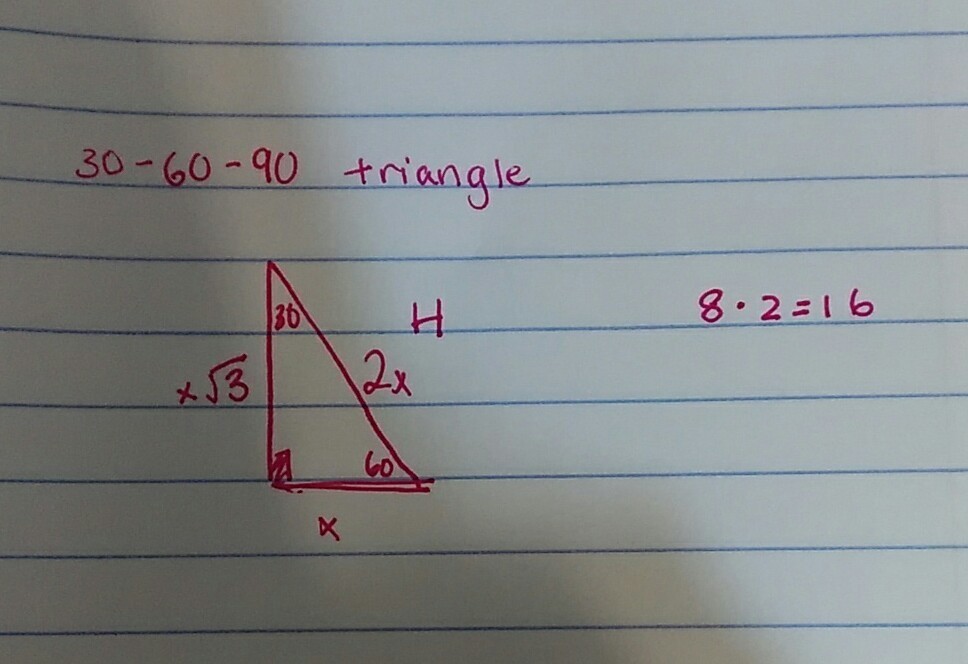 30-60-90 triangle
30
H
8·2=16
x√3
2x
60
x